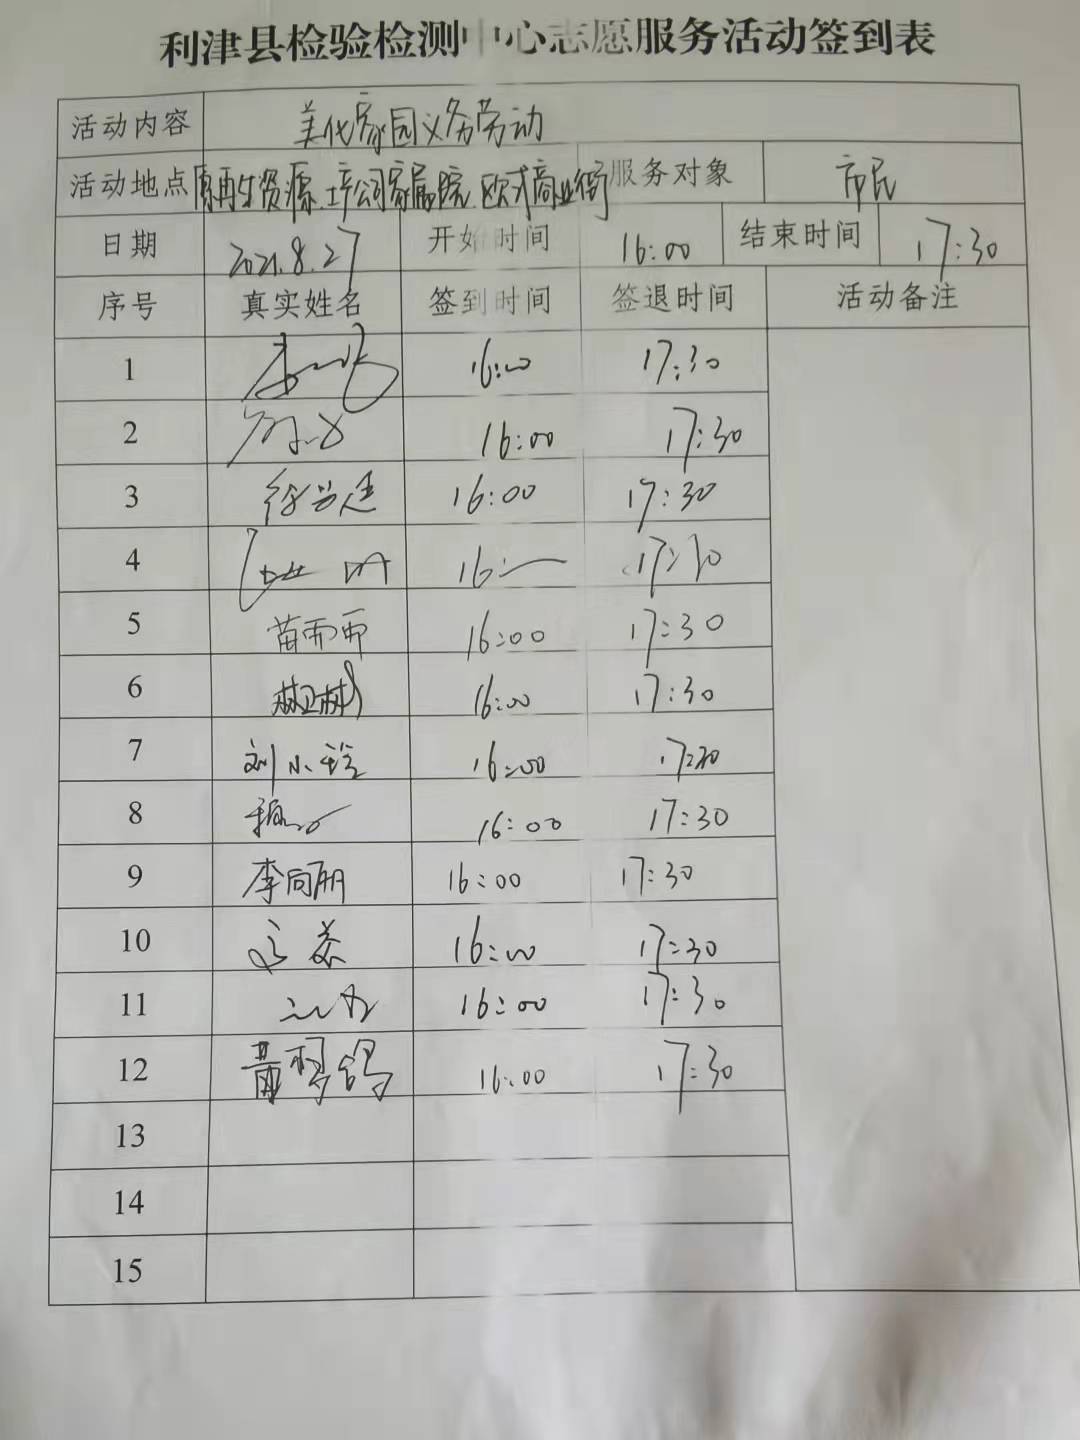 利津县检验检测中心志愿服务活动签到表
活动内容 美化家园义务劳动
活动地点 原再生资源 公司家属院 欧式商业街 服务对象 市民
日期 2021.8.27 开始时间 16:00 结束时间 17:30
序号 真实姓名 签到时间 签退时间 活动备注
1 16:00 17:30
2 16:00 17:30
3 16:00 17:30
4 16: 17:30
5 苗雨雨 16:00 17:30
6 16:00 17:30
7 刘小玲 16:00 17:30
8 16:00 17:30
9 李向丽 16:00 17:30
10 16:00 17:30
11 16:00 17:30
12 16:00 17:30
13
14
15